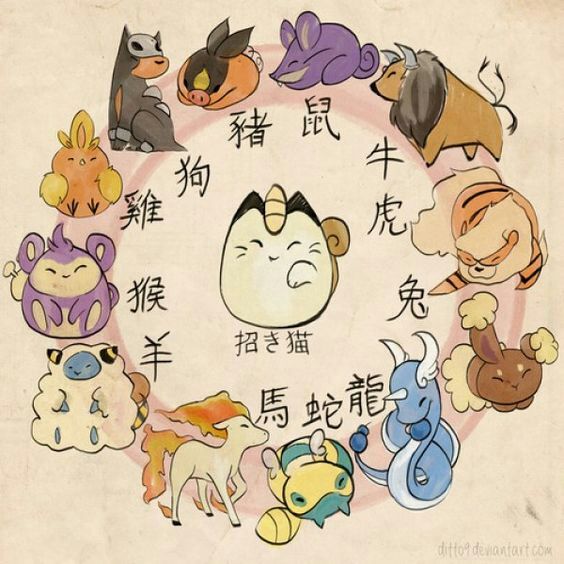 鼠
牛
虎
兔
龍
蛇
馬
羊
猴
雞
狗
豬
招き猫
ditto9.deviantart.com